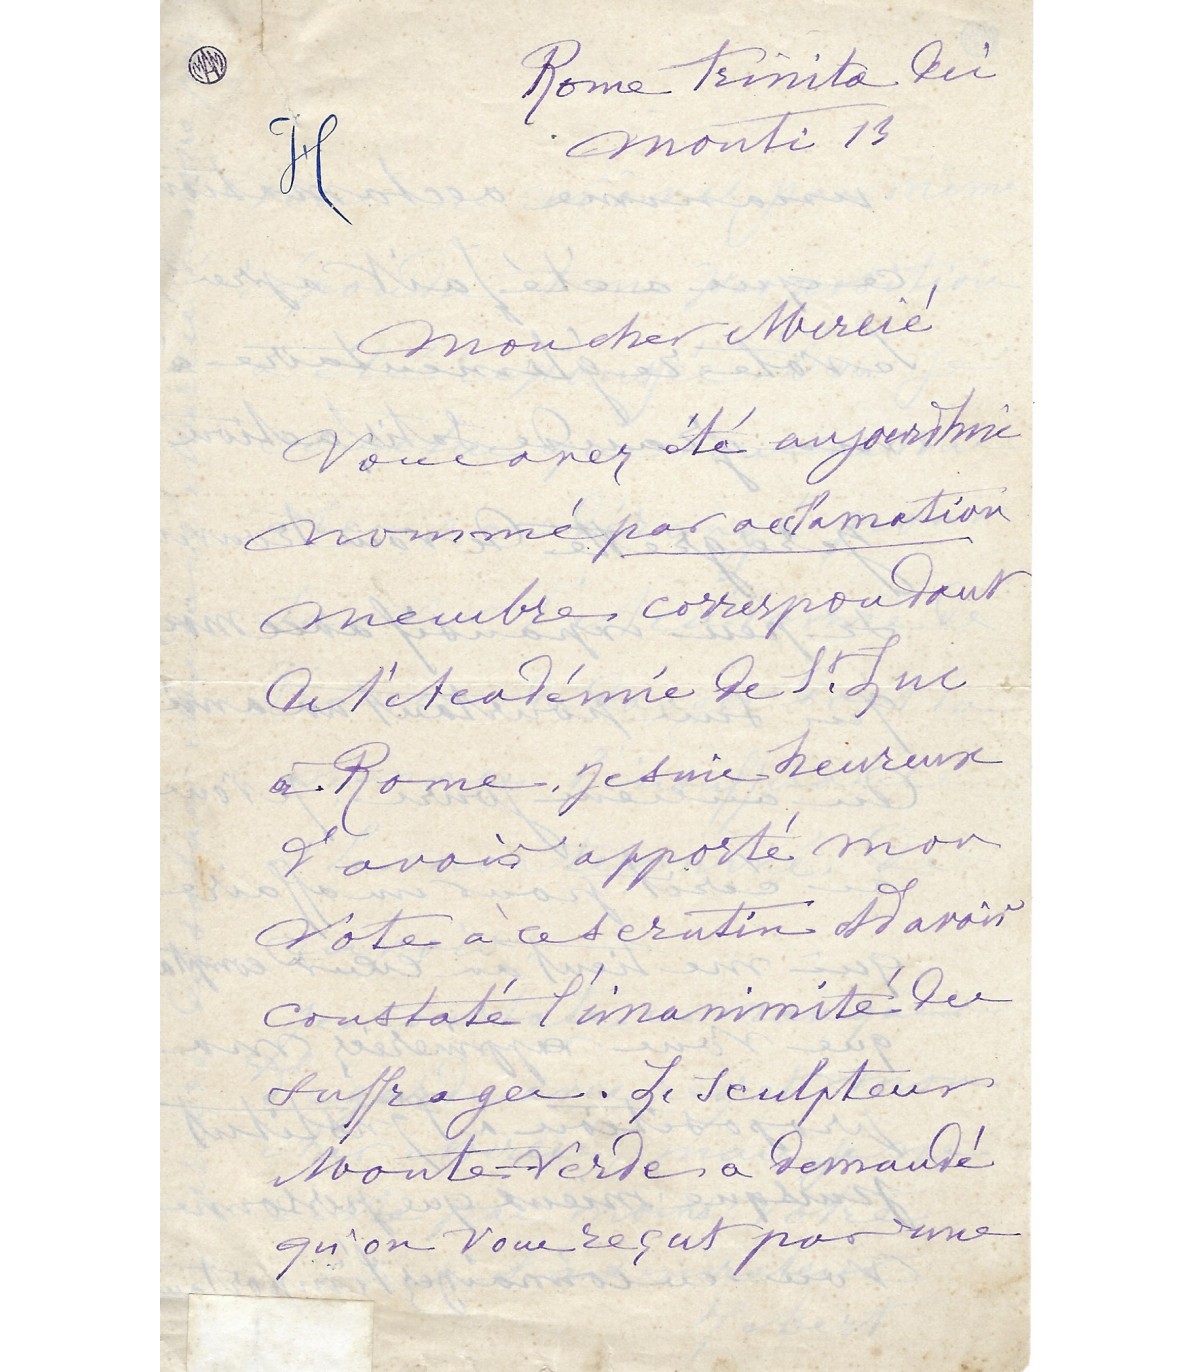 MAM
H
Rome Trinita dei
Monti 13
Mon cher Mercié
Vous avez été aujourd'hui
nommé par acclamation
membre correspondant
de l'Académie de St. Luc
à Rome. Je suis heureux
d'avoir apporté mon
vote à ce scrutin et d'avoir
constaté l'unanimité des
suffrages. Le sculpteur
Monte-Verde a demandé
qu'on vous reçut par une